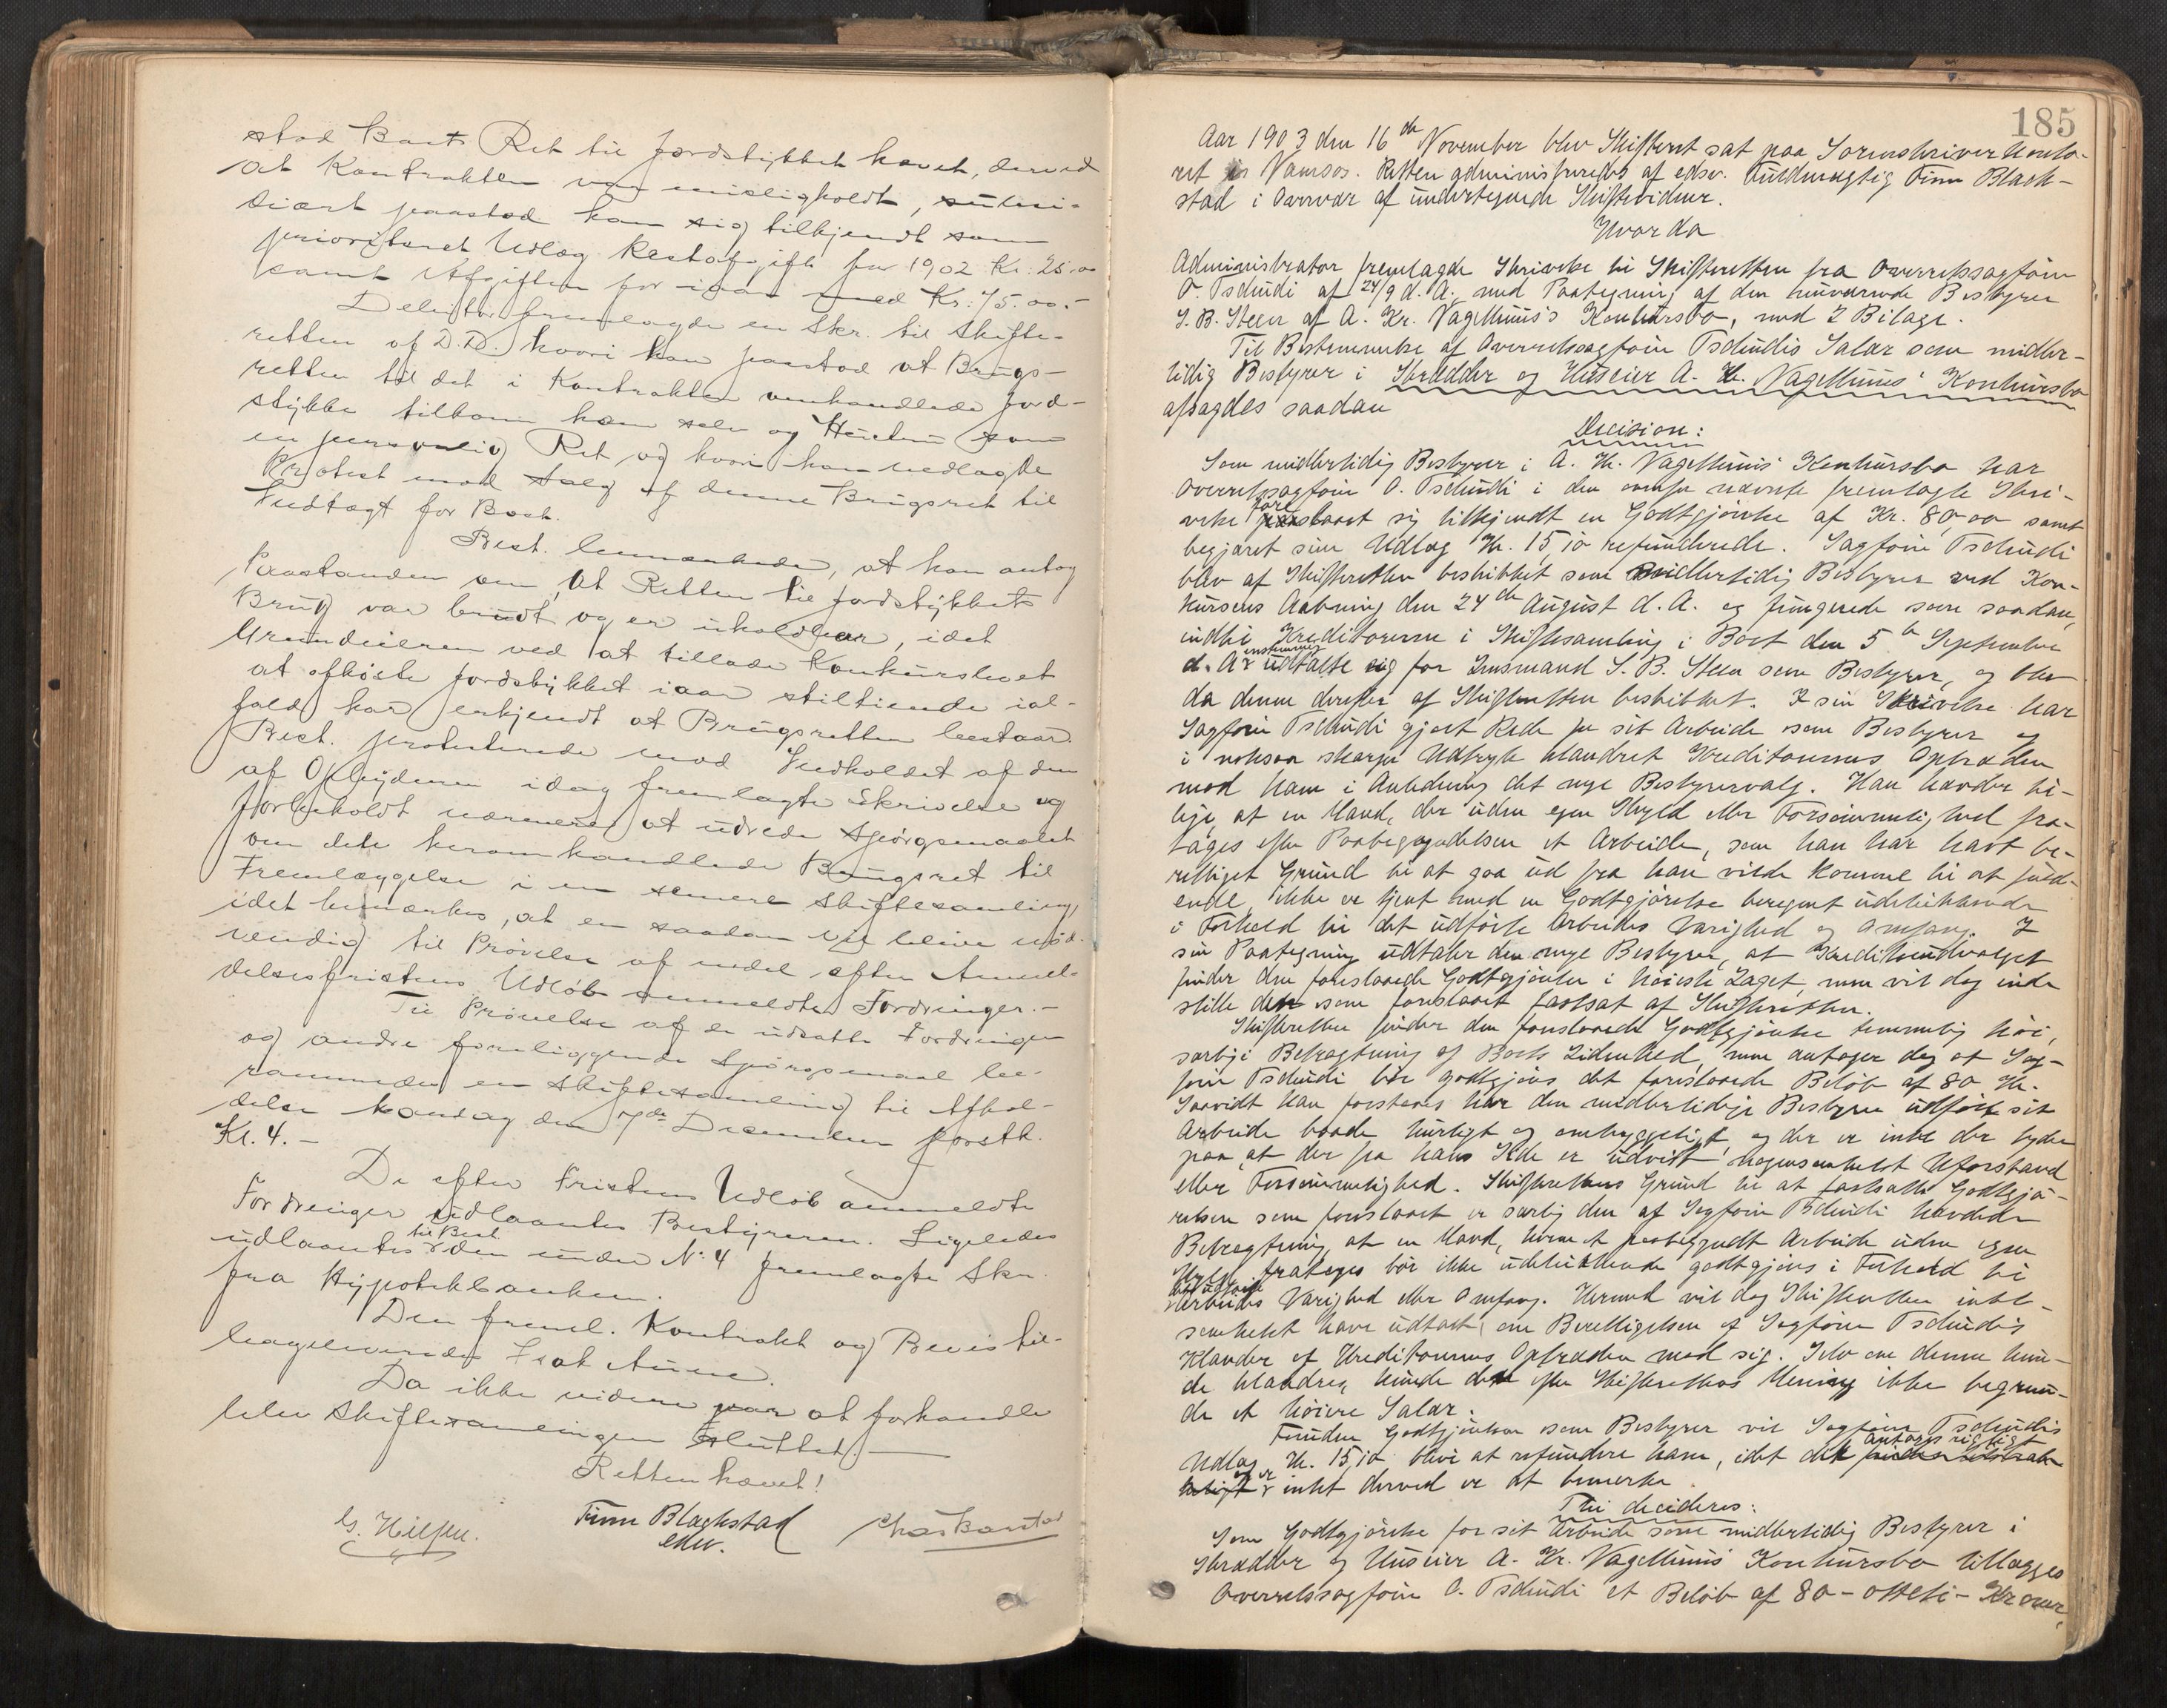 stod Boets Ret til Jordstykket hævet, derved
at Kontrakten var misligholdt, subsi-
diært paastod han sig tilkjendt som
prioriteret Udlæg Restafgift for 1902 Kr. 25.00
samt Afgiften for iaar med Kr. 75.00.-
Debitor fremlagde en Skr. til Skifte-
retten af D.D. hvori han paastod at Brugs-
retten til det i Kontrakten omhandlede Jord-
stykke tilkom ham selv og Hustru som
en personlig Ret og hvori han nedlagde
Protest mod Salg af denne Brugsret til
Indtægt for Boet.
Best. bemærkede, at han antog
Paastanden om, at Retten til Jordstykkets
Brug var brudt og er uholdbar, idet
Grundeieren ved at tillade Konkursboet
at afhøste Jordstykket iaar stiltiende ial-
fald har erkjendt at Brugsretten bestaar.
Best. protesterede mod Indholdet af den
af Opbyderen idag fremlagte Skrivelse og
forbeholdt nærmere at udrede Spørgsmaalet
om dete heromhandlede Brugsret til
Fremlæggelse i en senere Skiftesamling,
idet bemærkes, at en saadan vil blive nød-
vendig til Prøvelse af endel efter Anmel-
delsesfristens Udløb anmeldte Fordringer.-
Til Prøvelse af de udsatte Fordringer
og andre foreliggende Spørgsmaal be-
rammedes en Skiftesamling til Afhol-
delse Mandag den 7de December førstk.
Kl. 4.-
De efter Fristens Udløb anmeldte
Fordringer udlaantes Bestyreren. Ligeledes
udlaantes til Best. den under No 4 fremlagte Skr.
fra Hypotekbanken.
Den freml. Kontrakt og Bevis til-
bageleveredes
Da ikke videre var at forhandle
blev Skiftesamlingen sluttet.-
Retten hævet!
Finn Blackstad
edsv.
185
Aar 1903 den 16de November blev Skifteret sat paa Sorenskriverkonto-
ret i Namsos. Retten administreredes af edsv. Fuldmægtig Finn Black-
stad i Overvær af undertegnede Skiftevidner.
Hvorda
Administrator fremlagde Skrivelse til Skifteretten fra Overretssagfører
O. Tschudi af 24/9 d. A. med Paategning af den nuværende Bestyrer
S. B. Steen af A. Kr. Vagelhuus's Konkursbo, med 2 Bilage.
Til Bestemmelse af Overretssagfører Tschudis Salær som midler-
tidig Bestyrer i Skrædder og Huseier A. Kr. Vagelhuus' Konkursbo
afsagdes saadan
Decision:
Som midlertidig Bestyrer i A. Kr. Vagelhuus' Konkursbo har
Overretssagfører O. Tschudi i den ovenfor nævnte fremlagte Skri-
velse foreslaaet sig tilkjendt en Godtgjørelse af Kr. 80,00 samt
begjæret sine Udlæg Kr. 15,10 refunderede. Sagfører Tschudi
blev af Skifteretten beskikket som midlertidig Bestyrer ved Kon-
kursens Aabning den 24de August d. A. og fungerede som saadan,
indtil Kreditorerne i Skiftesamling i Boet den 5te September
d. A. enstemmig udtalte sig for Lensmand S. B. Steen som Bestyrer, og blev
da denne derefter af Skifteretten beskikket. I sin Skrivelse har
Sagfører Tschudi gjort Rede for sit Arbeide som Bestyrer og
i noksaa skarpe Udtryk klandret Kreditorernes Optræden
mod ham i Anledning det nye Bestyrervalg. Han hævder til-
lige, at en Mand, der uden egen Skyld eller Forsømmelighed fra-
tages efter Paabegyndelsen et Arbeide, som han har havt be-
rettiget Grund til at gaa ud fra han vilde komme til at fuld-
ende, ikke er tjent med en Godtgjørelse beregnet udelukkende
i Forhold til det udførte Arbeides Varighed og Omfang. I
sin Paategning udtaler den nye Bestyrer, at Kreditudvalget
finder den foreslaaede Godtgjørelse i høieste Laget, men vil dog inde
stille den som foreslaaet fastsat af Skifteretten.
Skifteretten finder den foreslaaede Godtgjørelse temmelig høi,
særlig i Betragtning af Boets Lidenhed, men antager dog at Sag-
fører Tschudi bør godtgjøres det foreslaaede Beløb af 80 Kr.
Saavidt kan forstaaes har den midlertidige Bestyrer udført sit
Arbeide baade hurtigt og omhyggeligt, og der er intet der tyder
paa, at der fra hans Side er udvist nogensomhelst Uforstand
eller Forsømmelighed. Skifterettens Grund til at fastsætte Godtgjø-
relsen som foreslaaet er særlig den af Sagfører Tschudi hævdede
Betragtning, at en Mand, hvem et paabegyndt Arbeide uden egen
Skyld fratages bør ikke udelukkende godtgjøres i Forhold til
det udførte Arbeides Varighed eller Omfang. Hermed vil dog Skifteretten intet-
somhelst have udtalt om Berettigelsen af Sagfører Tschudis
Klander af Kreditorernes Optræden mod sig. Selv om denne kun-
de klandres, kunde det efter Skifterettens Mening ikke begrun-
de et høiere Salær.
Foruden Godtgjørelsen som Bestyrer vil Sagfører Tschudis
Udlæg Kr. 15,10 blive at refundere ham, idet det antages rigtigt
og er intet derved er at bemerke.
Thi decideres:
Som Godtgjørelse for sit Arbeide som midlertidig Bestyrer i
Skrædder og Huseier A. Kr. Vagelhuus' Konkursbo tillægges
Overretssagfører O. Tschudi et Beløb af 80 - otteti - Kroner,